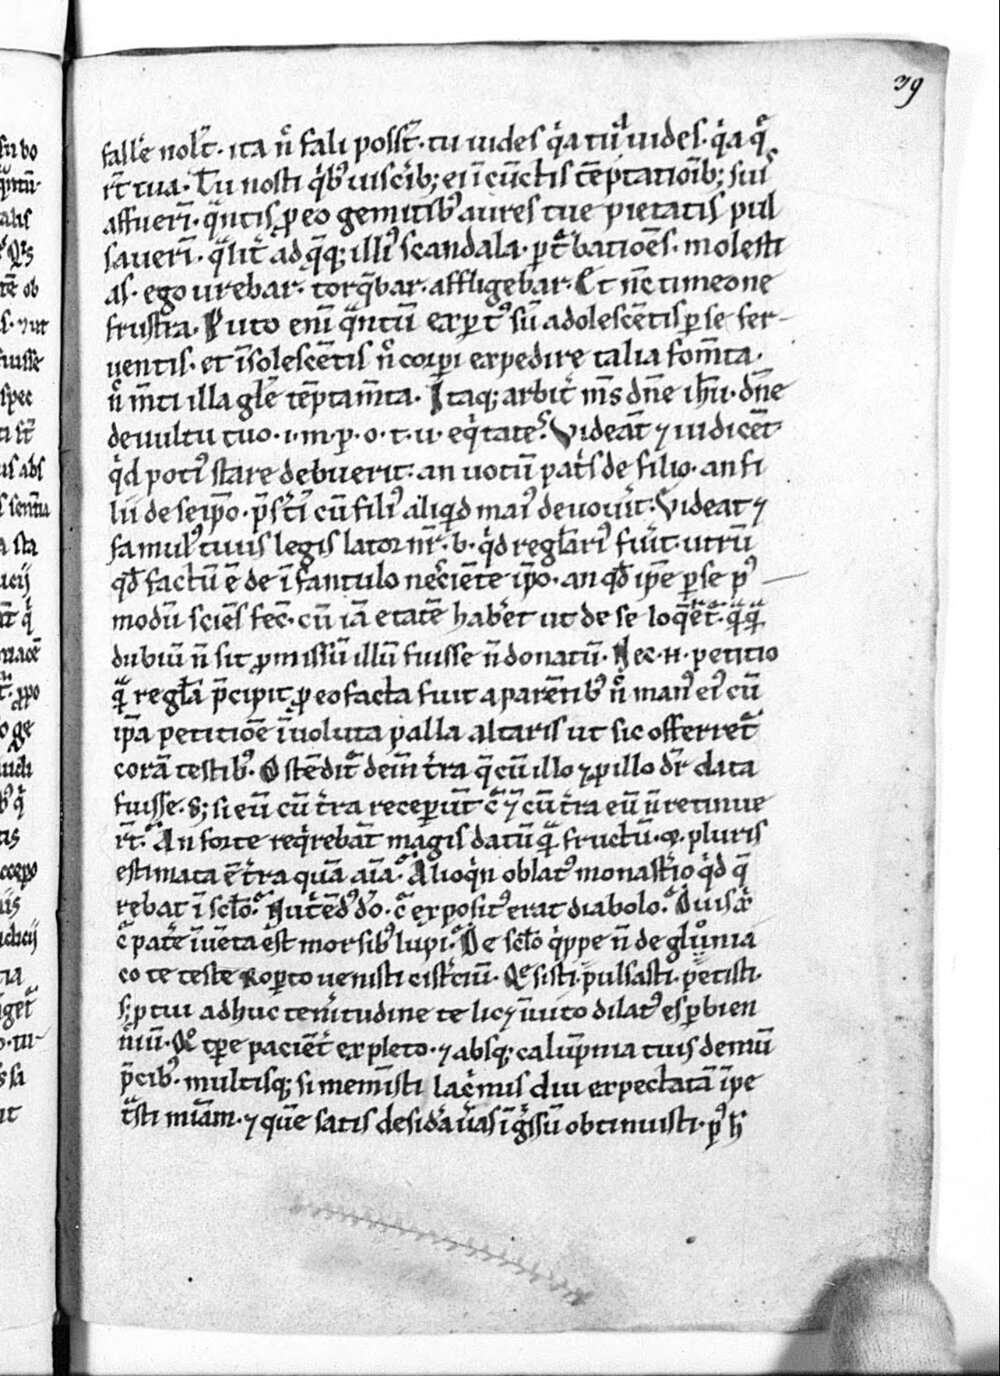 39
fall'e nolꝉ. ita n̄ fali posset. tu uides q̇a tuū uides. q̇a q̄
rt̄ tua. Tu nosti q̇b; uiscib; ei ī cūctis tēptatioīb; suis
affuerī. q̄ntis ꝓ eo gemitib; aures tue pietatis pul
sauerī. q̄lit̄ ad q̄q; illi' scandala. ꝑt̄batiōes. molesti
as. ego urebar. torq̄bar. affligebar. Et nc̄ timeo ne
frustra. Puto enī q̄ntū exꝑt' sū adolescētis ꝑ se fer-
uentis. et īsolescētis n̄ corpi expedire talia fom̄ta.
n̄ m̄ti illa gl'e tēptam̄ta. Itaq; arbit̄ m̄s dn̄e ih̄u. dn̄e
de uultu tuo. i. m. p. o. t. u. eq̇tatē. Videāt ⁊ iudicēt
q̇d poti' stare debuerit. an uotū pat̄s de filio. an fi
lii de seip̄o. p̄sti cū fili' aliq̇d mai' deuouit. Videat ⁊
famul' tuus legis lator nr̄. b. q̇d regl'ari' fuit. utrū
qd̄ factū ē de īfantulo nesciēte ip̄o. an qd̄ ip̄e ꝑ se p'
modū sciēs fec̄. cū iā etatē hab'et ut de se loq̄et̄. q̄q̄
dubiū n̄ sit ꝓmissū illū fuisse n̄ donatū. Nec .n. petitio
q̄ regl'a p̄cipit ꝓ eo facta fuit a parētib; n̄ man' ei' cū
ip̄a petitiōe īuoluta palla altaris ut sic offerret̄
corā testib;. Ostēdit̄ dem̄ t̄ra q̄ cū illo ⁊ ꝓ illo dr̄ data
fuisse. S; si eū cū t̄ra receperūt c̄ ⁊ cū t̄ra eū n̄ retinue
rt̄. An forte req̇rebāt magis datū q̄ fructū. ⁊ pluris
estimata ē t̄ra quā aīa. Alioq̇n oblat' monast̄io q̇d q̄
rebat ī sclo. Nut̄ēd' dō. c̄ exposit' erat diabolo. Ouis xr̄
c̄ patē īuēta est morsib; lupi. De sclo q̇ppe n̄ de gluunia
co te teste Roꝑto uenisti cisterciū. Qesisti. pulsasti. petisti.
s; ꝓ tui adhuc tenitudine te licꝫ īuito dilat' es ꝑ bien
niū. Qo tp̄e paciēt̄ expleto. ⁊ absq; calūpnia tuis demū
p̄cib;. multisq; si memīsti lac̄mis diu expectatā īpe
t̄sti miam. ⁊ quē satis desid'aūas īg̊ssū obtinuisti. p' h̄